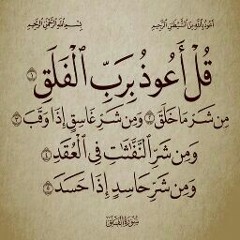 أعوذ بالله من الشيطن الرجيم بسم الله الرحمن الرحيم
قُلْ أَعُوذُ بِرَبِّ ٱلْفَلَقِ ١
مِن شَرِّ مَا خَلَقَ ٢ وَمِن شَرِّ غَاسِقٍ إِذَا وَقَبَ ٣
وَمِن شَرِّ ٱلنَّفَّٰثَٰتِ فِى ٱلْعُقَدِ ٤
وَمِن شَرِّ حَاسِدٍ إِذَا حَسَدَ ٥
سورة الفلق